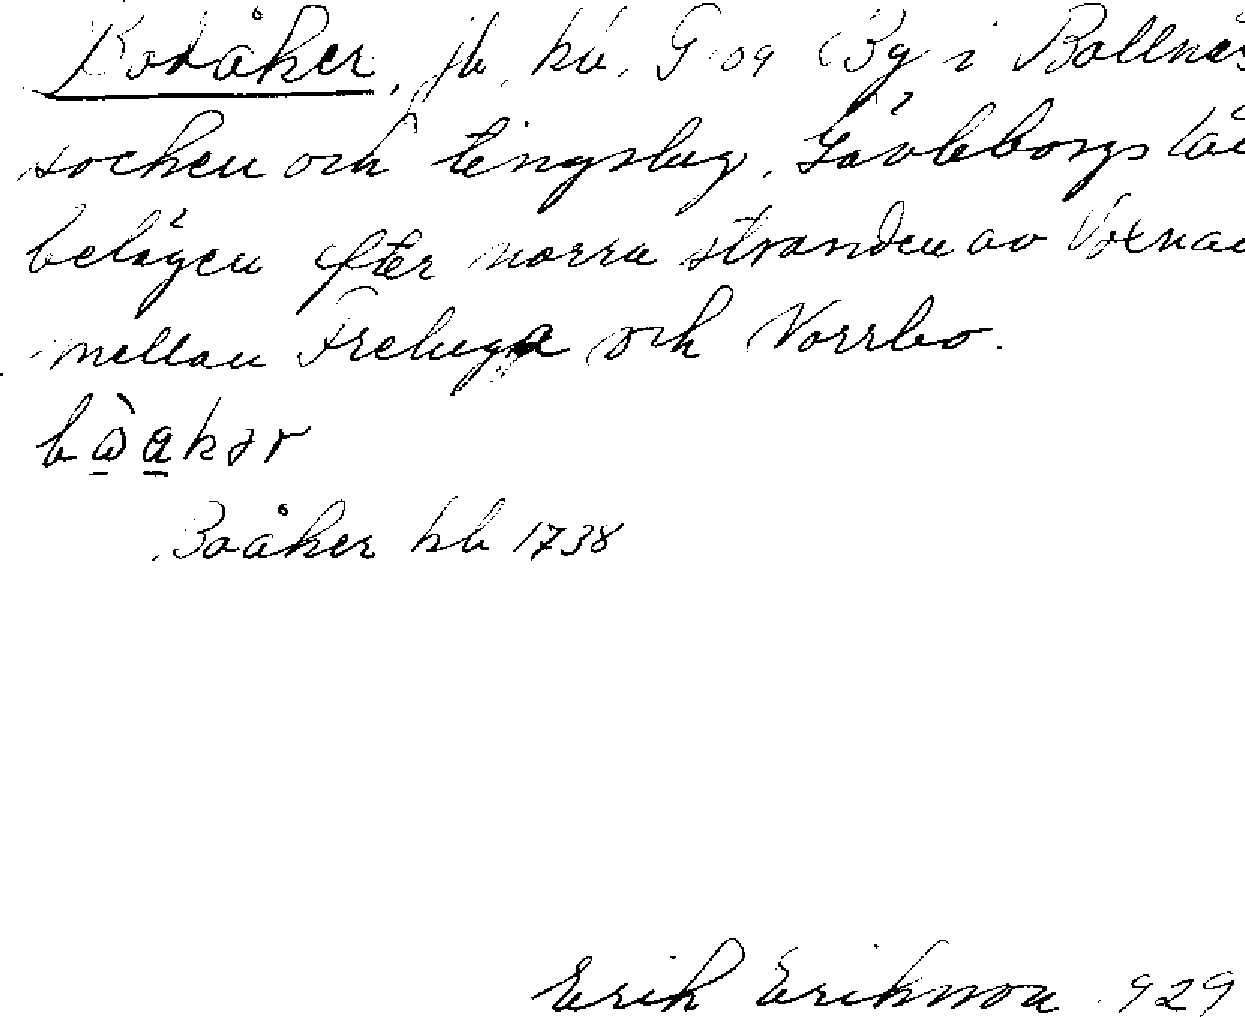 Bodåker, jb, kb, G 09 By i Bollnäs
socken och tingslag, Gävleborgs lä
belägen efter norra stranden av Voxnan
mellan Freluga och Norrbo.
Boåker kb 1738
Erik Eriksson 929